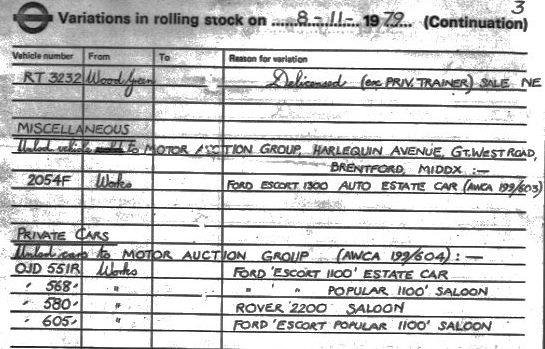 3
Variations in rolling stock on 8-11-1979 (Continuation)
Vehicle number From To Reason for variation
RT 3232 Wood Green Delicensed (ex PRIV. TRAINER) SALE NE
MISCELLANEOUS
Unlcd vehicle to MOTOR AUCTION GROUP, HARLEQUIN AVENUE, GT. WEST ROAD,
BRENTFORD, MIDDX :—
2054F Works FORD ESCORT 1300 AUTO ESTATE CAR (AWCA 199/603)
PRIVATE CARS
Unlcd cars to MOTOR AUCTION GROUP (AWCA 199/604) :—
OJD 551R Works FORD 'ESCORT 1100' ESTATE CAR
" 568" " " " POPULAR 1100' SALOON
" 580" " ROVER '2200' SALOON
" 605" " FORD 'ESCORT POPULAR 1100' SALOON